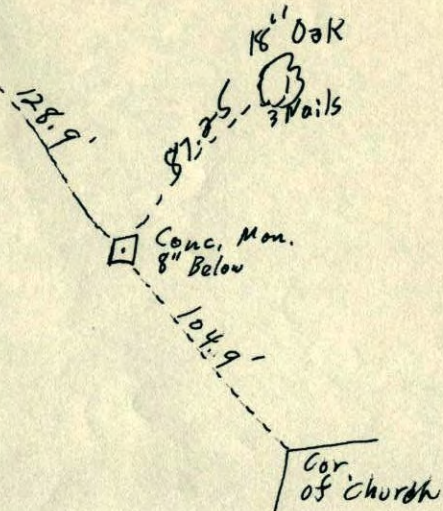 18" Oak
3 Nails
128.9'
87.25
Conc. Mon.
8" Below
104.9'
Cor
of Church